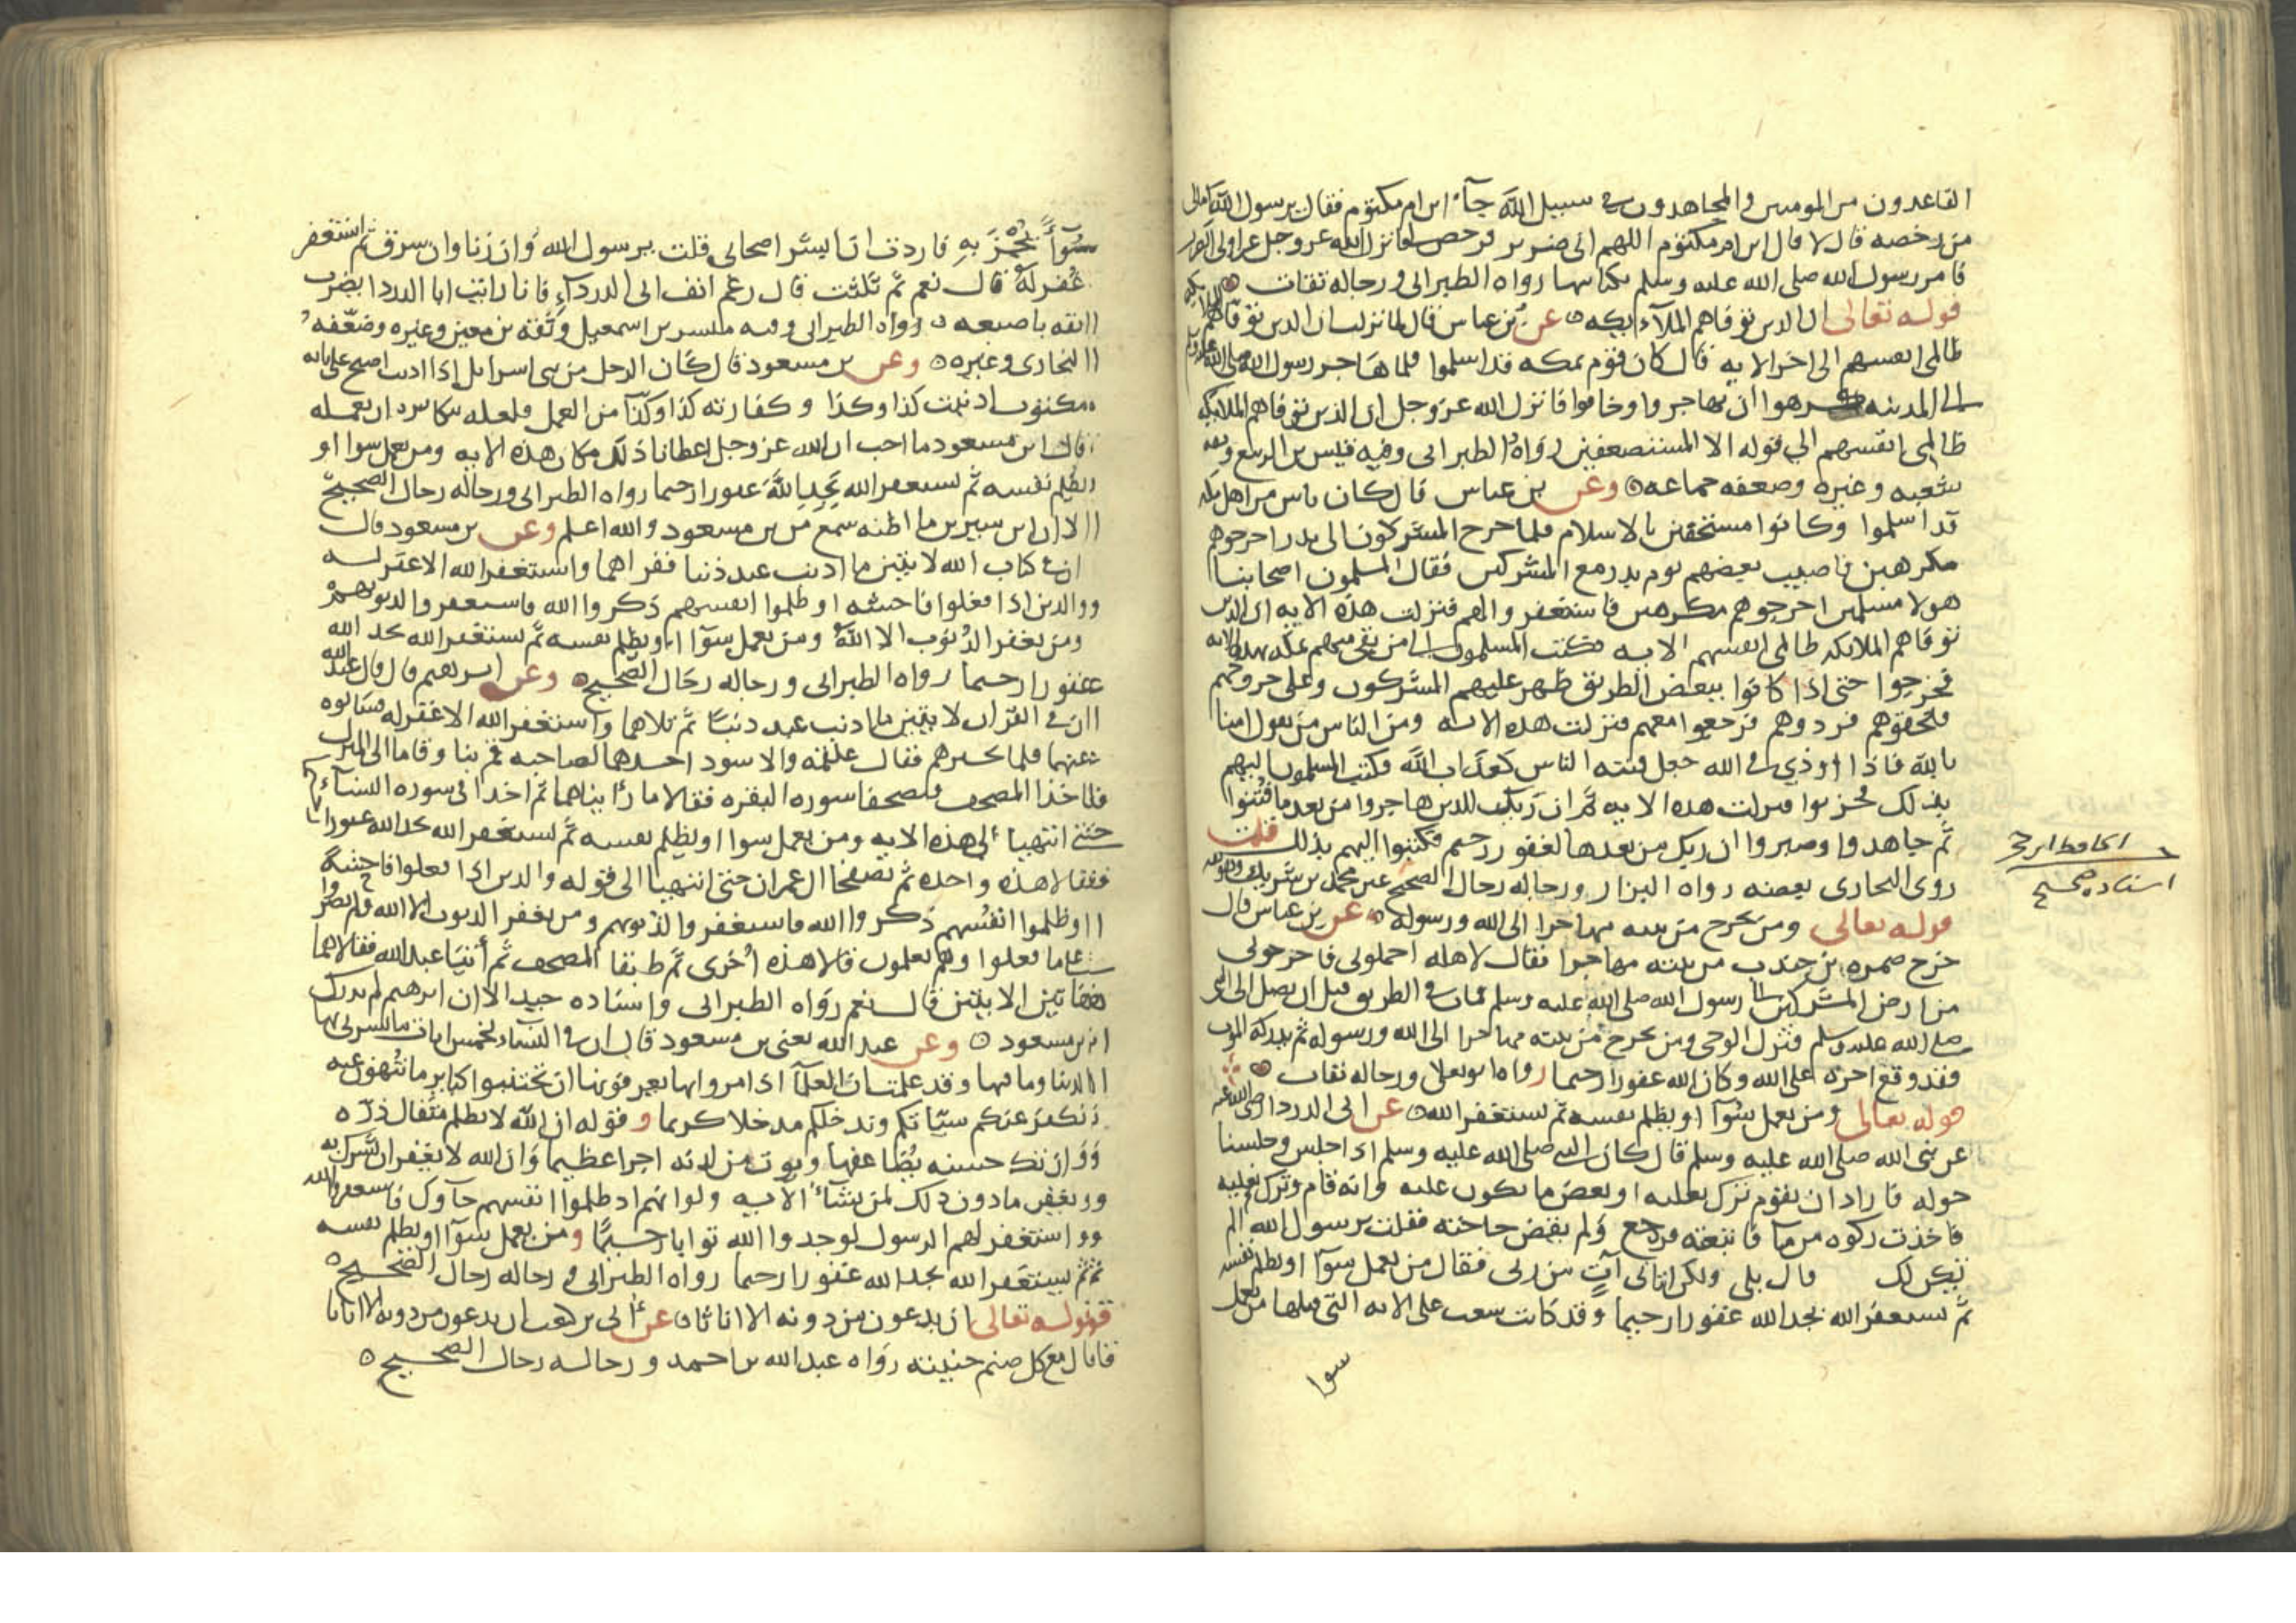 القاعدون من المومنين والمجاهدون في سبيل الله جآء ابن ام مكتوم فقال يرسول الله اما لي
من رخصه قال لا قال ابن ام مكتوم اللهم اني ضرير فرخص لي فانزل الله عز وجل غير اولي الضرر
فامر رسول الله صلى الله عليه وسلم بكتابتها رواه الطبراني ورجاله ثقات
قوله تعالى ان الذين توفاهم الملآئيكه عن بن عباس قال لما نزلت ان الذين توفاهم الملائكه
ظالمي انفسهم الى اخر الايه قال كان قوم بمكه قد اسلموا فلما هاجر رسول الله صلى الله عليه وسلم
الى المدينه كرهوا ان يهاجروا وخافوا فانزل الله عز وجل ان الذين توفاهم الملايكه
ظالمي انفسهم الي قوله الا المستضعفين رواه الطبراني وفيه قيس بن الربيع وثقه
شعبه وغيره وضعفه جماعه وعن بن عباس قال كان ناس من اهل مكه
قد اسلموا وكانوا مستخفين بالاسلام فلما خرج المشركون الى بدر اخرجوهم
مكرهين فاصيب بعضهم يوم بدر مع المشركين فقال المسلمون اصحابنا
هولا مسلمين اخرجوهم مكرهين فاستغفروا لهم فنزلت هذه الايه ان الذين
توفاهم الملايكه ظالمي انفسهم الايه فكتب المسلمون الى من بقي منهم بمكه بهذه الايه
فخرجوا حتى اذا كانوا ببعض الطريق ظهر عليهم المشركون وعلى خروجهم
فلحقوهم فردوهم فرجعوا معهم فنزلت هذه الايه ومن الناس من يقول امنا
بالله فاذا اوذي في الله جعل فتنه الناس كعذاب الله فكتب المسلمون اليهم
بذلك فحزنوا فنزلت هذه الايه ثم ان ربك للذين هاجروا من بعد ما فتنوا
ثم جاهدوا وصبروا ان ربك من بعدها لغفور رحيم فكتبوا اليهم بذلك قلت
روى البخاري بعضه رواه البزار ورجاله رجال الصحيح غير محمد بن شريك وهو ثقه
قوله تعالى ومن يخرج من بيته مهاجرا الى الله ورسوله عن بن عباس قال
خرج ضمره بن جندب من بيته مهاجرا فقال لاهله احملوني فاخرجوني
من ارض المشركين الى رسول الله صلى الله عليه وسلم فمات في الطريق قبل ان يصل الى النبي
صلى الله عليه وسلم فنزل الوحي ومن يخرج من بيته مهاجرا الى الله ورسوله ثم يدركه الموت
فقد وقع اجره على الله وكان الله غفورا رحيما رواه ابو يعلى ورجاله ثقات
قوله تعالى ومن يعمل سُوٓا او يظلم نفسه ثم يستغفر الله عن ابي الدردا رضي الله عنه
عن نبي الله صلى الله عليه وسلم قال كان النبي صلى الله عليه وسلم اذا جلس وجلسنا
حوله فاراد ان يقوم ترك نعليه او بعض ما يكون عليه وانه قام وترك نعليه
فاخذت ركوه من ما فاتبعته فرجع ولم يقض حاجته فقلت يرسول الله الم
تكن لك قال بلى ولكن اتاني آتٍ من ربي فقال من يعمل سوٓا او يظلم نفسه
ثم يستغفر الله يجد الله غفورا رحيما وقد كانت شقت علي الايه التي قبلها من يعمل
سوا
الحافظ ابن حجر
اسناده صحيح
سُوٓاً يُجْزَ بِهِ فاردت ان ابشر اصحابي قلت يرسول الله وان زنا وان سرق ثم استغفر
غُفر له قال نعم ثم ثلثت قال رغم انف ابي الدرداء فانا رايت ابا الدردا يضرب
انفه باصبعه رواه الطبراني وفيه مبشر بن اسمعيل وثقه بن معين وغيره وضعّفه
البخاري وغيره وعن بن مسعود قال كان الرجل من بني اسرايل اذا اذنب اصبح على بابه
مكتوب اذنبت كذا وكذا وكفارته كذا وكذا من العمل فلعله يتكاسر ان يعمله
قال ابن مسعود ما احب ان الله عز وجل اعطانا ذلك مكان هذه الايه ومن يعمل سوا او
يظلم نفسه ثم يستغفر الله يَجِدِ اللَّهَ غفورا رحيما رواه الطبراني ورجاله رجال الصحيح
الا ان ابن سيرين ما اظنه سمع من بن مسعود والله اعلم وعن بن مسعود قال
ان في كتاب الله لايتين ما اذنب عبد ذنبا فقراهما واستغفر الله الا غفر له
والذين اذا فعلوا فاحشه او ظلموا انفسهم ذكروا الله فاستغفروا لذنوبهم
ومن يغفر الذُنوب الا اللهُ ومن يعمل سوٓا او يظلم نفسه ثم يستغفر الله يجد الله
غفورا رحيما رواه الطبراني ورجاله رجال الصحيح وعن ابرهيم قال قال عبد الله
ان في القران لايتين ما اذنب عبد ذنبًا ثم تلاهما واستغفر الله الا غفر له فسالوه
عنهما فلم يخبرهم فقال علقمه والاسود احدهما لصاحبه قم بنا فقاما الى المنزل
فاخذا المصحف فتصفحا سوره البقره فقالا ما رأيناهما ثم اخذا في سوره النساء
حتى انتهيا الى هذه الايه ومن يعمل سوا او يظلم نفسه ثم يستغفر الله يجد الله غفورا
فقالا هذه واحده ثم تصفحا ال عمران حتى انتهيا الى قوله والذين اذا فعلوا فاحشة
او ظلموا انفُسهم ذكروا الله فاستغفروا لذنوبهم ومن يغفر الذنوب الا الله ولم يصروا
على ما فعلوا وهم يعلمون قالا هذه اُخرى ثم طبقا المصحف ثم أتيا عبد الله فقالا هما
هاتين الايتين قال نعم رواه الطبراني واسناده جيد الا ان ابرهيم لم يدرك
ابن مسعود وعن عبد الله يعني بن مسعود قال ان في النساء لخمس ايات ما يسرني بها
الدنيا وما فيها وقد علمت ان العلمآ اذا مروا بها يعرفونها ان تجتنبوا كبايرِ ما تُنهون عنه
نكفر عنكم سيّاتكم وندخلكم مدخلا كريما و قوله ان الله لا يظلم مثقال ذرّه
وان تك حسنه يُضاعفها ويوت من لدنه اجرا عظيما وان الله لا يغفر ان يشرك به
ويغفر ما دون ذلك لمن يشآء الايه ولو انهم اذ ظلموا انفسهم جآوك فاستغفروا الله
واستغفر لهم الرسول لوجدوا الله توابا رحيمًا ومن يعمل سوٓا او يظلم نفسه
ثم يستغفر الله يجد الله غفورا رحيما رواه الطبراني ورجاله رجال الصحيح
قوله تعالى ان يدعون من دونه الا اناثا عن أبي بن كعب ان يدعون من دونه الا اناثا
قال مع كل صنم جنيته رواه عبد الله بن احمد ورجاله رجال الصحيح